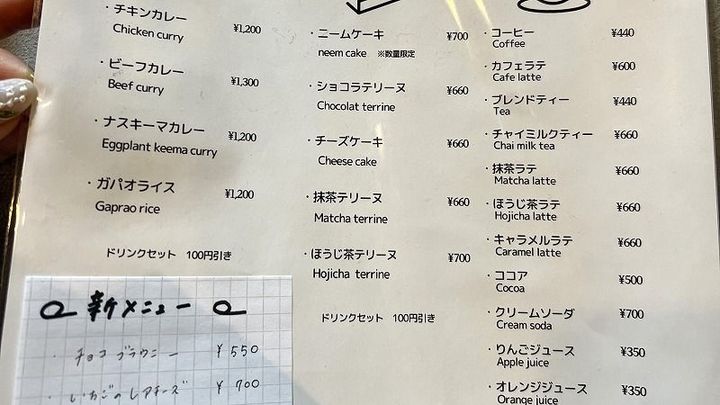 ・チキンカレー ¥1,200
Chicken curry
・ビーフカレー ¥1,300
Beef curry
・ナスキーマカレー ¥1,200
Eggplant keema curry
・ガパオライス ¥1,200
Gaprao rice
ドリンクセット 100円引き
新メニュー
・チョコブラウニー ¥550
・いちごのレアチーズ ¥700
・ニームケーキ ¥700
neem cake ※数量限定
・ショコラテリーヌ ¥660
Chocolat terrine
・チーズケーキ ¥660
Cheese cake
・抹茶テリーヌ ¥660
Matcha terrine
・ほうじ茶テリーヌ ¥700
Hojicha terrine
ドリンクセット 100円引き
・コーヒー ¥440
Coffee
・カフェラテ ¥600
Cafe latte
・ブレンドティー ¥440
Tea
・チャイミルクティー ¥660
Chai milk tea
・抹茶ラテ ¥660
Matcha latte
・ほうじ茶ラテ ¥660
Hojicha latte
・キャラメルラテ ¥660
Caramel latte
・ココア ¥500
Cocoa
・クリームソーダ ¥700
Cream soda
・りんごジュース ¥350
Apple juice
・オレンジジュース ¥350
Orange juice